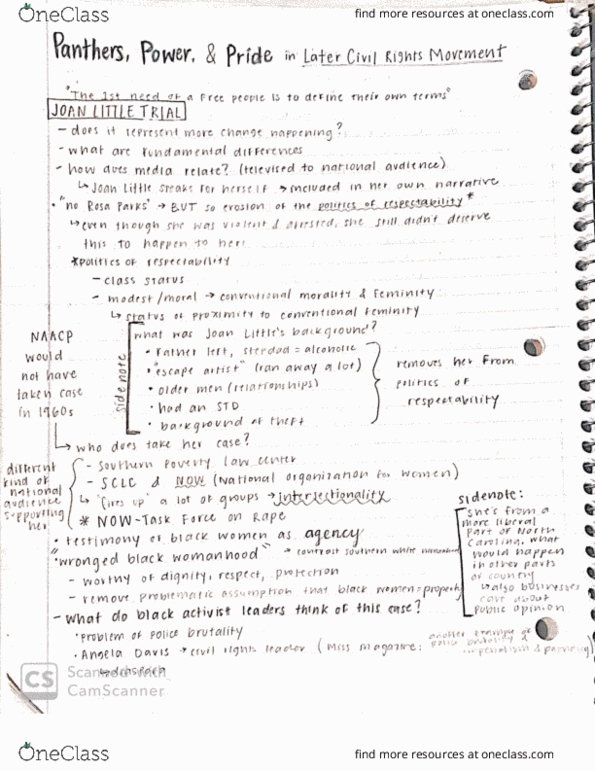 OneClass
find more resources at oneclass.com
Panthers, Power, & Pride in Later Civil Rights Movement
"The 1st need of a free people is to define their own terms"
JOAN LITTLE TRIAL
- does it represent more change happening?
- what are fundamental differences
- how does media relate? (televised to national audience)
↳ Joan Little speaks for herself → included in her own narrative
• "no Rosa Parks" → BUT so erosion of the politics of respectability *
↳ even though she was violent & arrested, she still didn't deserve
this to happen to her
* politics of respectability
- class status
- modest/moral → conventional morality & feminity
↳ status of proximity to conventional feminity
side note
what was Joan Little's background?
• Father left, stepdad = alcoholic
• "escape artist" (ran away a lot)
• older men (relationships)
• had an STD
• background of theft
removes her from
politics of
respectability
NAACP
would
not have
taken case
in 1960s
↳ who does take her case?
- Southern Poverty Law center
- SCLC & NOW (National organization for women)
↳ "fires up" a lot of groups → intersectionality
* NOW - Task Force on Rape
different
kind of
national
audience
supporting
her
• testimony of black women as agency
"wronged black womanhood" → contrast southern white
- worthy of dignity, respect, protection
- remove problematic assumption that black women = property
sidenote:
she's from a
more liberal
part of North
Carolina, what
would happen
in other parts
of country
↳ also businesses
care about
public opinion
- what do black activist leaders think of this case?
• problem of police brutality
• Angela Davis → civil rights leader (Miss Magazine: another example of police brutality & imperialism &
CS
Scanned with
CamScanner
OneClass
find more resources at oneclass.com